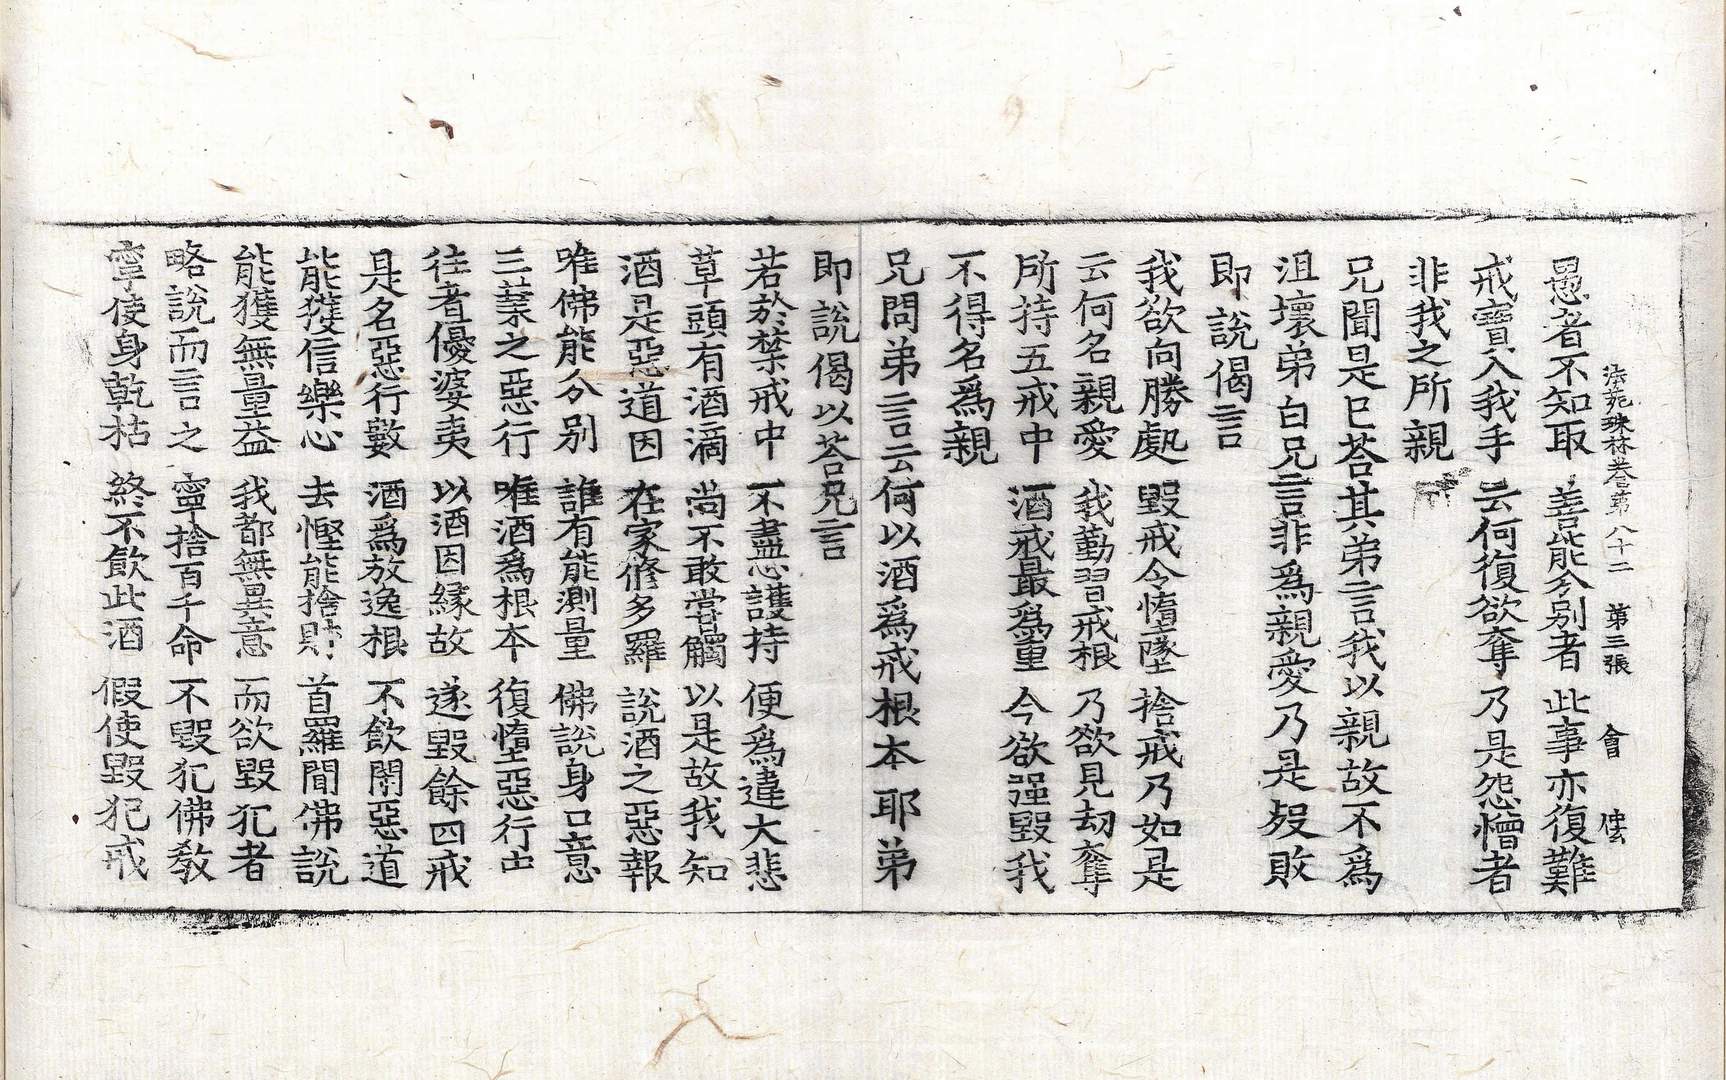 法苑珠林卷第八十二　第三張　會
愚者不知取　善能分別者　此事亦復難
戒寶入我手　云何復欲奪　乃是怨憎者
非我之所親
兄聞是已荅其弟言我以親故不爲
沮壞弟白兄言非爲親愛乃是歿敗
即說偈言
我欲向勝處　毀戒令惰墜　捨戒乃如是
云何名親愛　我勤習戒根　乃欲見劫奪
所持五戒中　酒戒最爲重　今欲强毀我
不得名爲親
兄問弟言云何以酒爲戒根本耶弟
即說偈以荅兄言
若於禁戒中　不盡心護持　便爲違大悲
草頭有酒滴　尚不敢嘗觸　以是故我知
酒是惡道因　在家修多羅　說酒之惡報
唯佛能分別　誰有能測量　佛說身口意
三業之惡行　唯酒爲根本　復墮惡行中
往者優婆夷　以酒因緣故　遂毀餘四戒
是名惡行數　酒爲放逸根　不飲閉惡道
能獲信樂心　去慳能捨財　首羅聞佛說
能獲無量益　我都無異意　而欲毀犯者
略說而言之　寧捨百千命　不毀犯佛敎
寧使身乾枯　終不飮此酒　假使毀犯戒